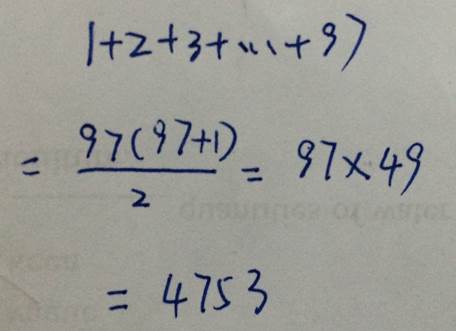 1+2+3+...+97
= 97(97+1)/2 = 97×49
= 4753